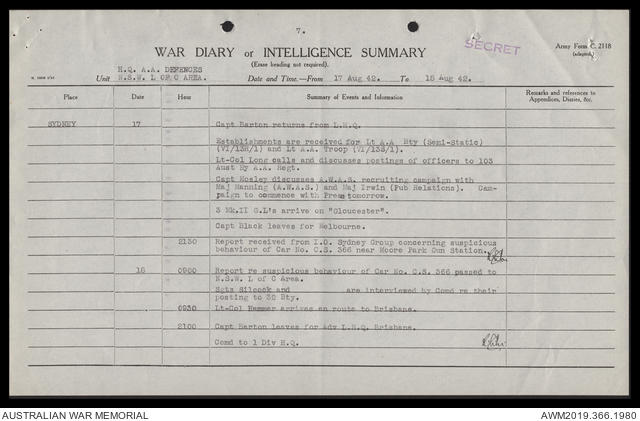 7.
WAR DIARY or INTELLIGENCE SUMMARY
SECRET
Army Form C. 2118
(adapted.)
(Erase heading not required).
H.Q. A.A. DEFENCES
Unit N.S.W. L OF C AREA.
Date and Time.—From 17 Aug 42. To 18 Aug 42.
Place
Date
Hour
Summary of Events and Information
Remarks and references to
Appendices, Diaries, &c.
SYDNEY 17 Capt Barton returns from L.H.Q.
Establishments are received for Lt A.A Bty (Semi-Static)
(VI/13H/1) and Lt A.A. Troop (VI/138/1).
Lt-Col Long calls and discusses postings of officers to 103
Aust Hy A.A. Regt.
Capt Mosley discusses A.W.A.S. recruiting campaign with
Maj Manning (A.W.A.S.) and Maj Irwin (Pub Relations). Cam-
paign to commence with Press tomorrow.
3 Mk.II G.L's arrive on "Gloucester".
Capt Black leaves for Melbourne.
2130 Report received from I.O. Sydney Group concerning suspicious
behaviour of Car No. C.S. 366 near Moore Park Gun Station.
18 0900 Report re suspicious behaviour of Car No. C.S. 366 passed to
N.S.W. L of C Area.
Sgts Silcock and are interviewed by Comd re their
posting to 32 Bty.
0930 Lt-Col Hammer arrives en route to Brisbane.
2100 Capt Barton leaves for Adv L.H.Q. Brisbane.
Comd to 1 Div H.Q.
AUSTRALIAN WAR MEMORIAL
AWM2019.366.1980